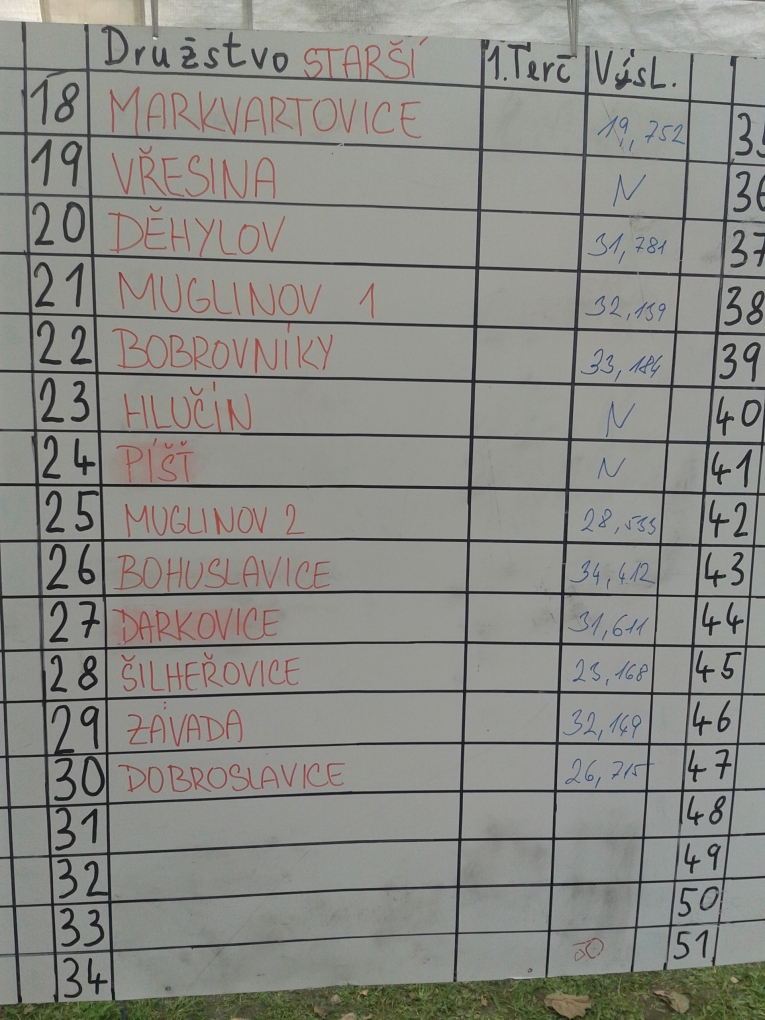 Družstvo STARŠÍ 1.Terč Výsl.
18 MARKVARTOVICE 19,752
19 VŘESINA N 36
20 DĚHYLOV 31,781 37
21 MUGLINOV 1 32,139 38
22 BOBROVNÍKY 33,184 39
23 HLUČÍN N 40
24 PÍŠŤ N 41
25 MUGLINOV 2 28,533 42
26 BOHUSLAVICE 34,412 43
27 DARKOVICE 31,611 44
28 ŠILHEŘOVICE 23,168 45
29 ZÁVADA 32,149 46
30 DOBROSLAVICE 26,715 47
31 48
32 49
33 50
34 51